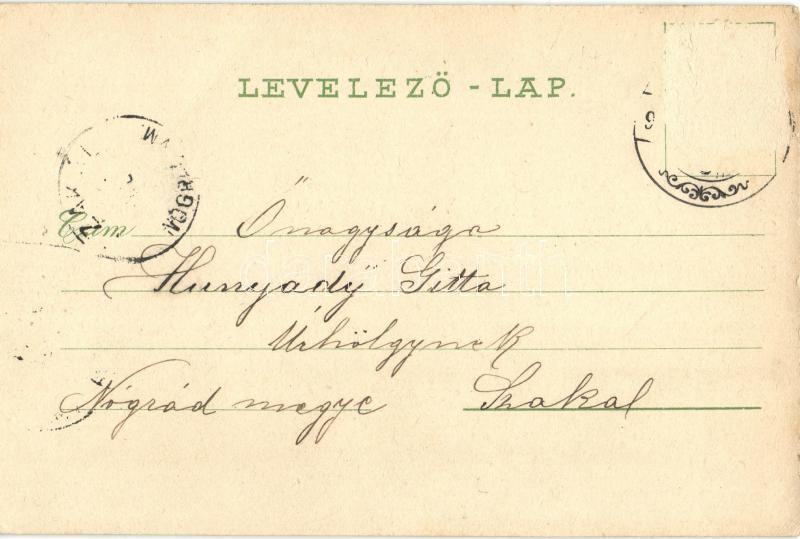 LEVELEZŐ-LAP.
Czím Őnagysága
Hunyady Gitta
Úrhölgynek
Nógrád megye Szakal
NÓGRÁD M